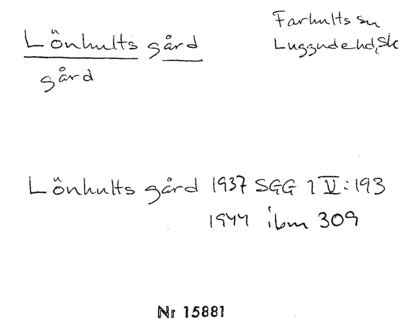 Lönhults gård
gård
Farhults sn
Luggude hd, Sk
Lönhults gård 1937 SGG 1 V:193
1944 ibm 309
Nr 15881